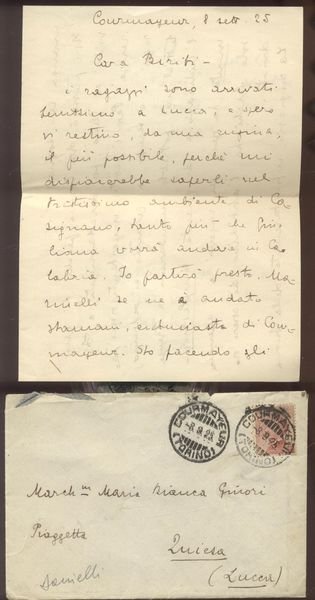 Courmayeur, 8 sett. 25
Cara Biribi -
i ragazzi sono arrivati
benissimo a Lucca, e spero
vi restino, da mia cugina,
il più possibile, perchè mi
dispiacerebbe saperli nel
tristissimo ambiente di Ca-
signano, tanto più che Giu-
liana vorrà andare in Ca-
labria. Io partirò presto. Ma-
se ne è andato
stamani, entusiasta di Cour-
mayeur. Sto facendo gli
COURMAYEUR
-8.9.25
(TORINO)
COURMAYEUR
-8.9.25
(TORINO)
March.sa Maria Bianca Ginori
Piaggetta
Quiesa
(Lucca)